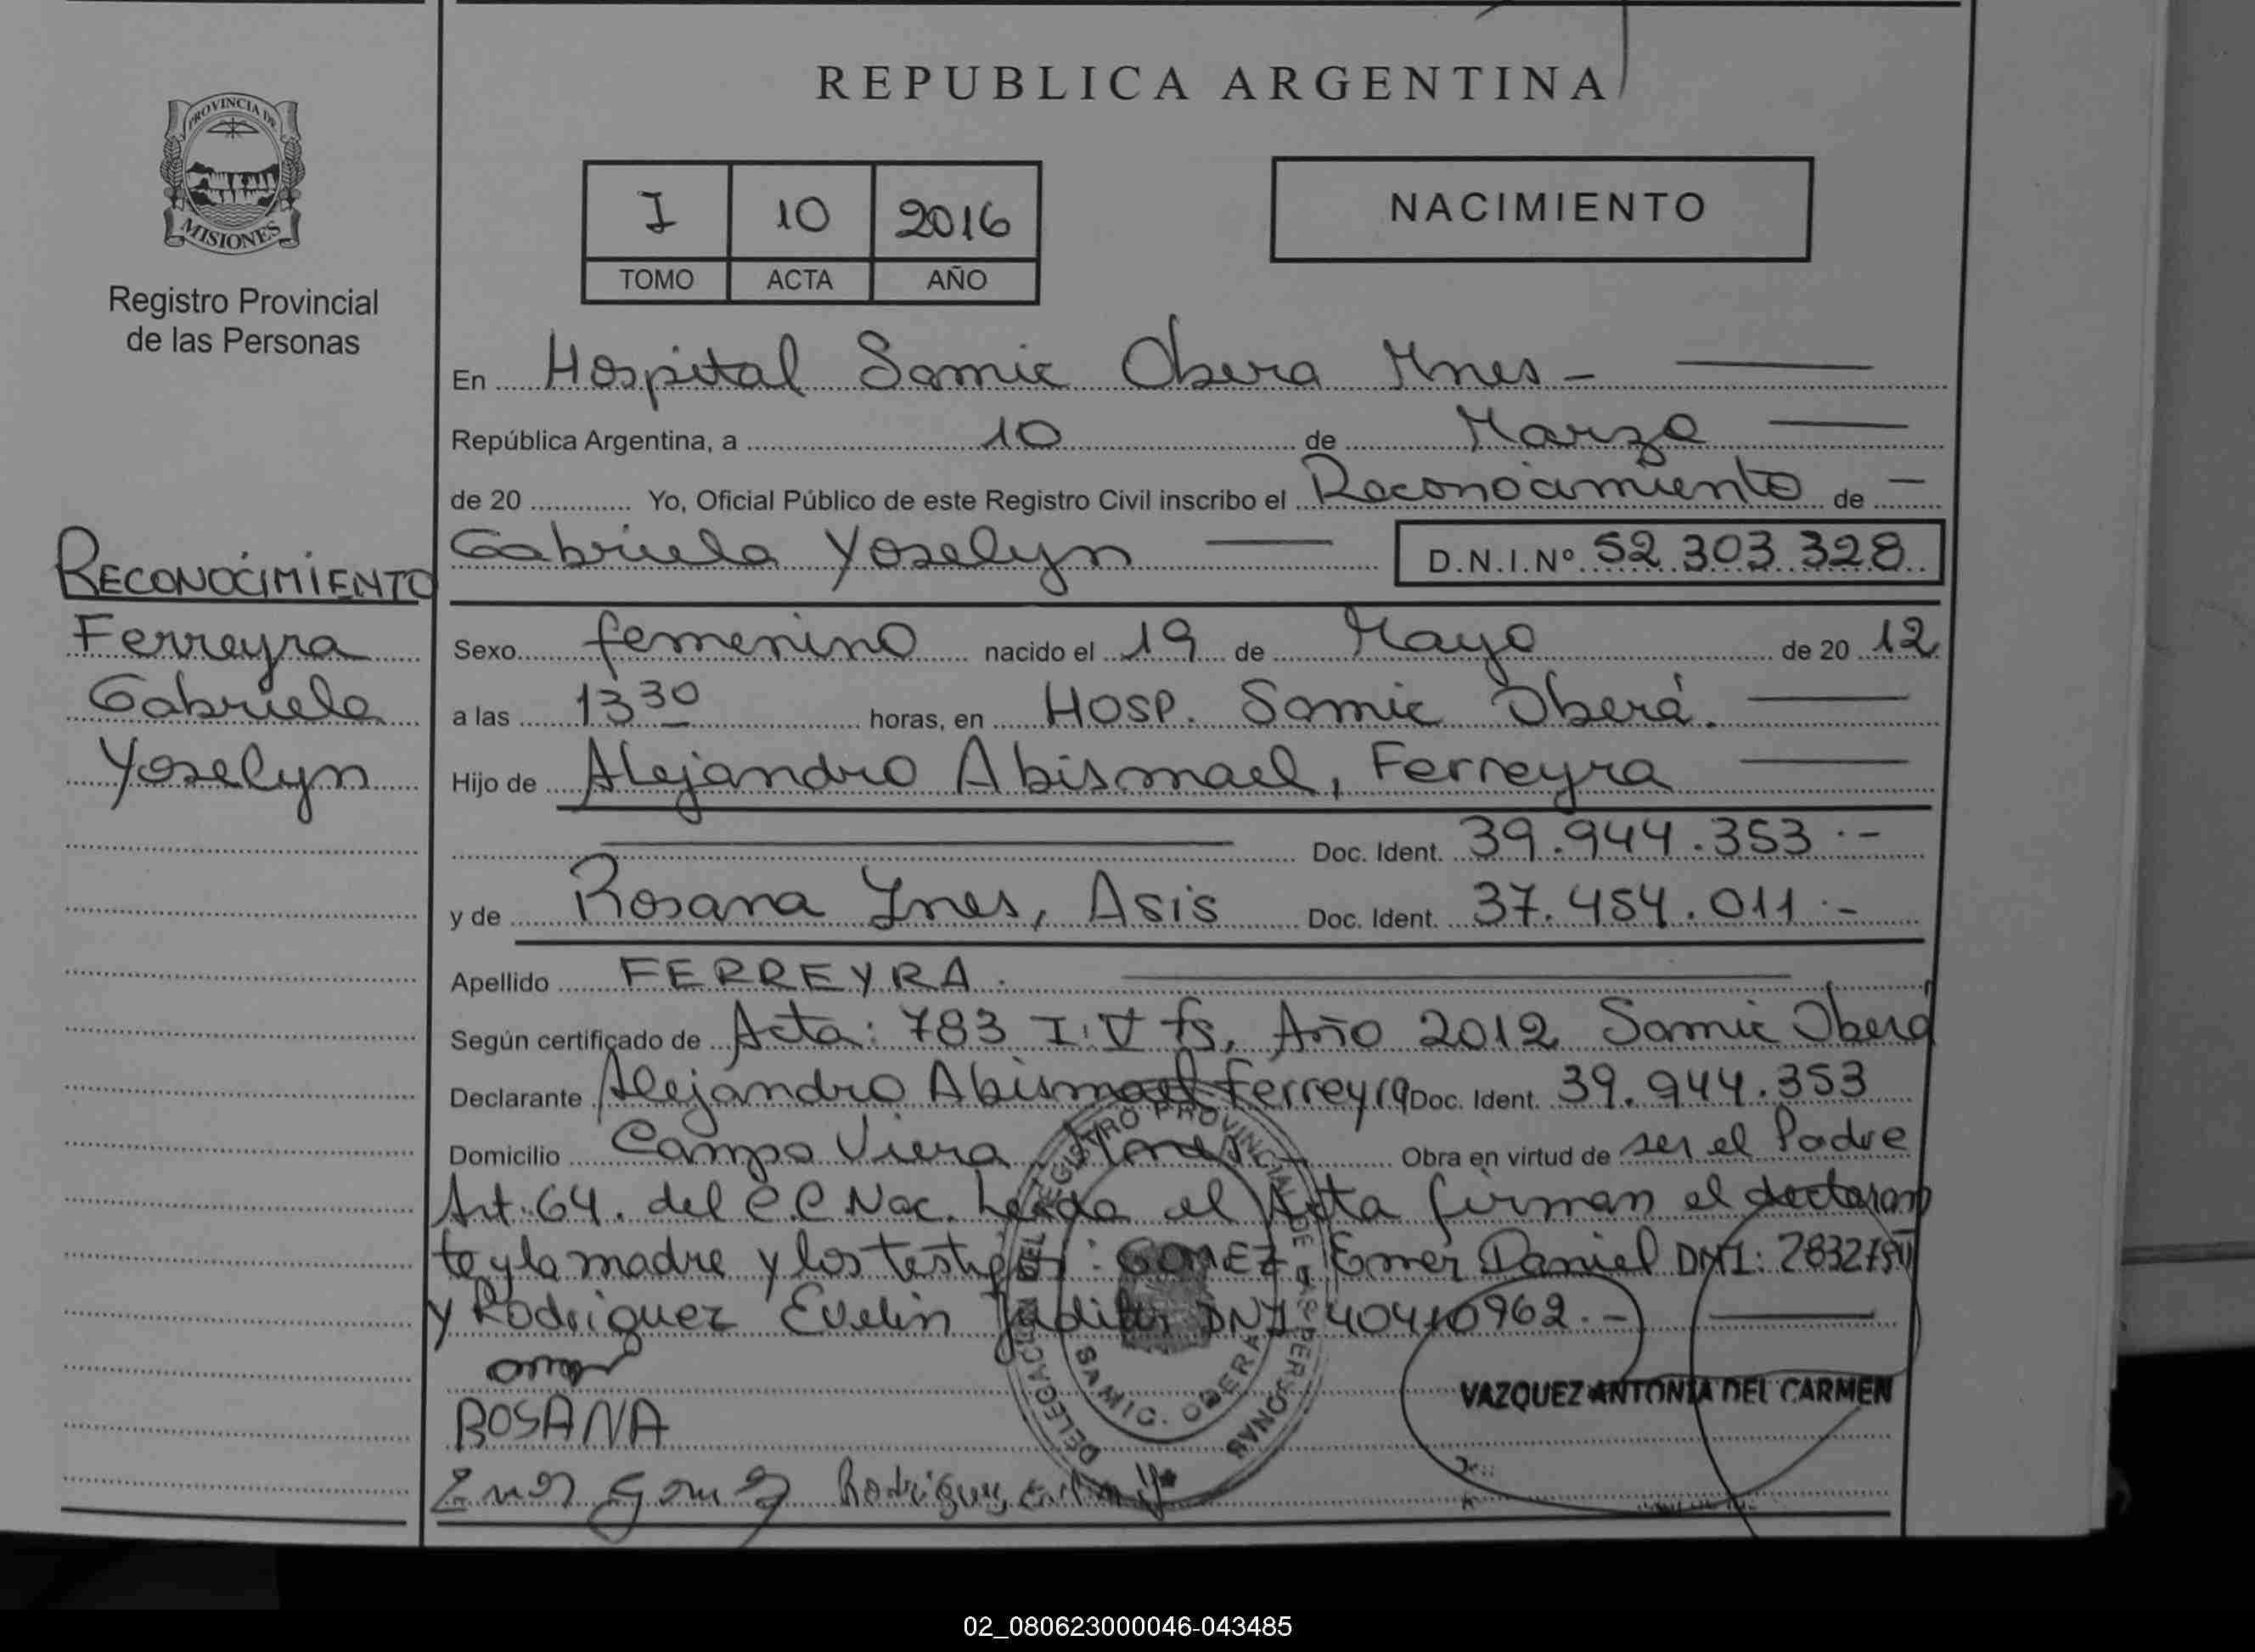 REPUBLICA ARGENTINA
PROVINCIA DE
MISIONES
Registro Provincial
de las Personas
I 10 2016
TOMO ACTA AÑO
NACIMIENTO
En Hospital Samic Obera Mnes -
República Argentina, a 10 de Marzo
de 20 Yo, Oficial Público de este Registro Civil inscribo el Reconocimiento de
Gabriela Yoselyn D.N.I.Nº 52.303.328
RECONOCIMIENTO
Ferreyra
Gabriela
Yoselyn
Sexo femenino nacido el 19 de Mayo de 20 12
a las 13 30 horas, en Hosp. Samic Oberá.
Hijo de Alejandro Abismael, Ferreyra
Doc. Ident. 39.944.353.-
y de Rosana Ynes, Asis Doc. Ident. 37.454.011.-
Apellido FERREYRA.
Según certificado de Acta: 783 T: V fs. Año 2012 Samic Oberá
Declarante Alejandro Abismael Ferreyra Doc. Ident. 39.944.353
Domicilio Campo Viera Mnes. Obra en virtud de ser el Padre
Art. 64. del C.C Nac. Leída el Acta firman el declaran
te y la madre y los testigos: GOMEZ, Emer Daniel DNI:
y Rodriguez Evelin DNI 40410962.-
VAZQUEZ ANTONIA DEL CARMEN
ROSANA
Gomez Rodriguez
DELEGACION DEL REGISTRO PROVINCIAL DE LAS PERSONAS
SAMIC. OBERA
02_080623000046-043485